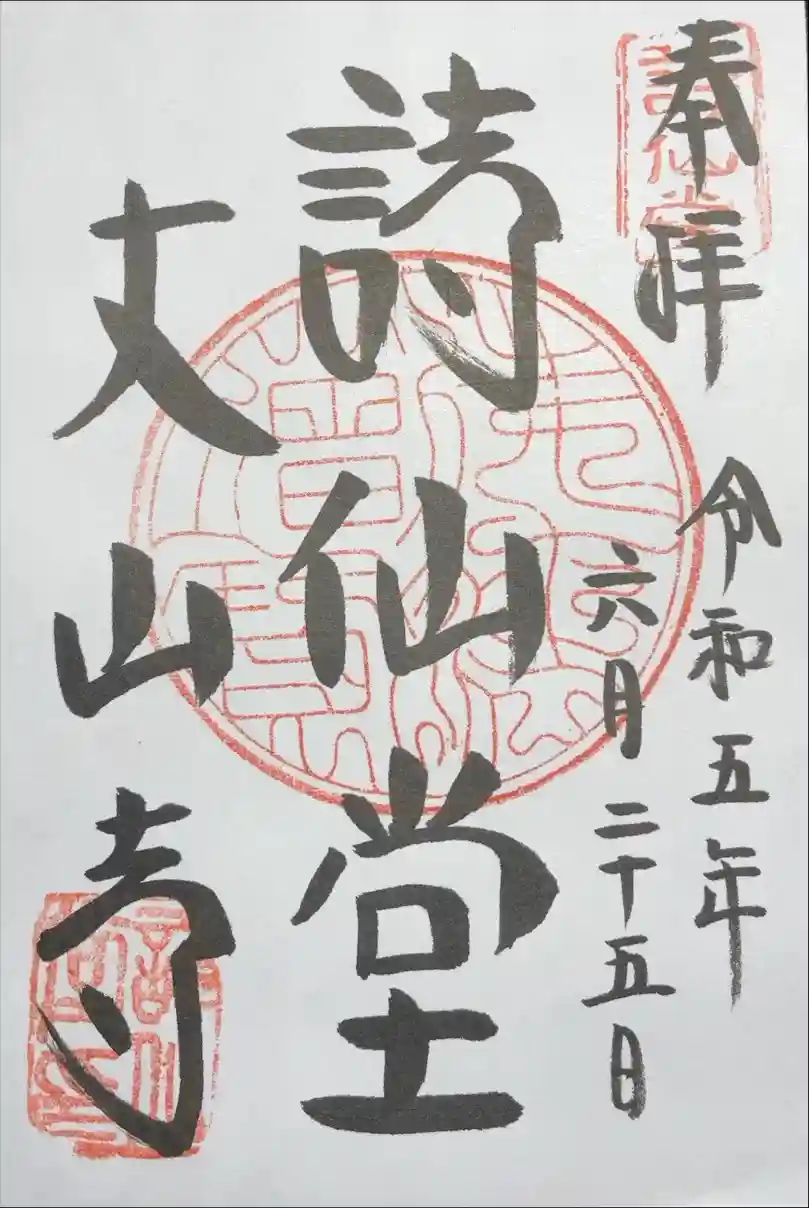 奉拝
令和五年
六月二十五日
詩仙堂
丈山寺